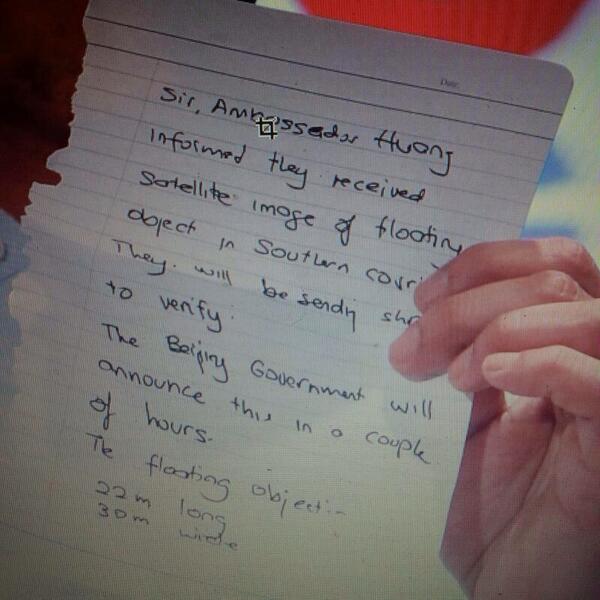 Date
Sir, Ambassador Huang
informed they received
Satellite image of floating
object in Southern
They will be sending
to verify.
The Beijing Government will
announce this in a couple
of hours.
The floating object
22m long
30m wide